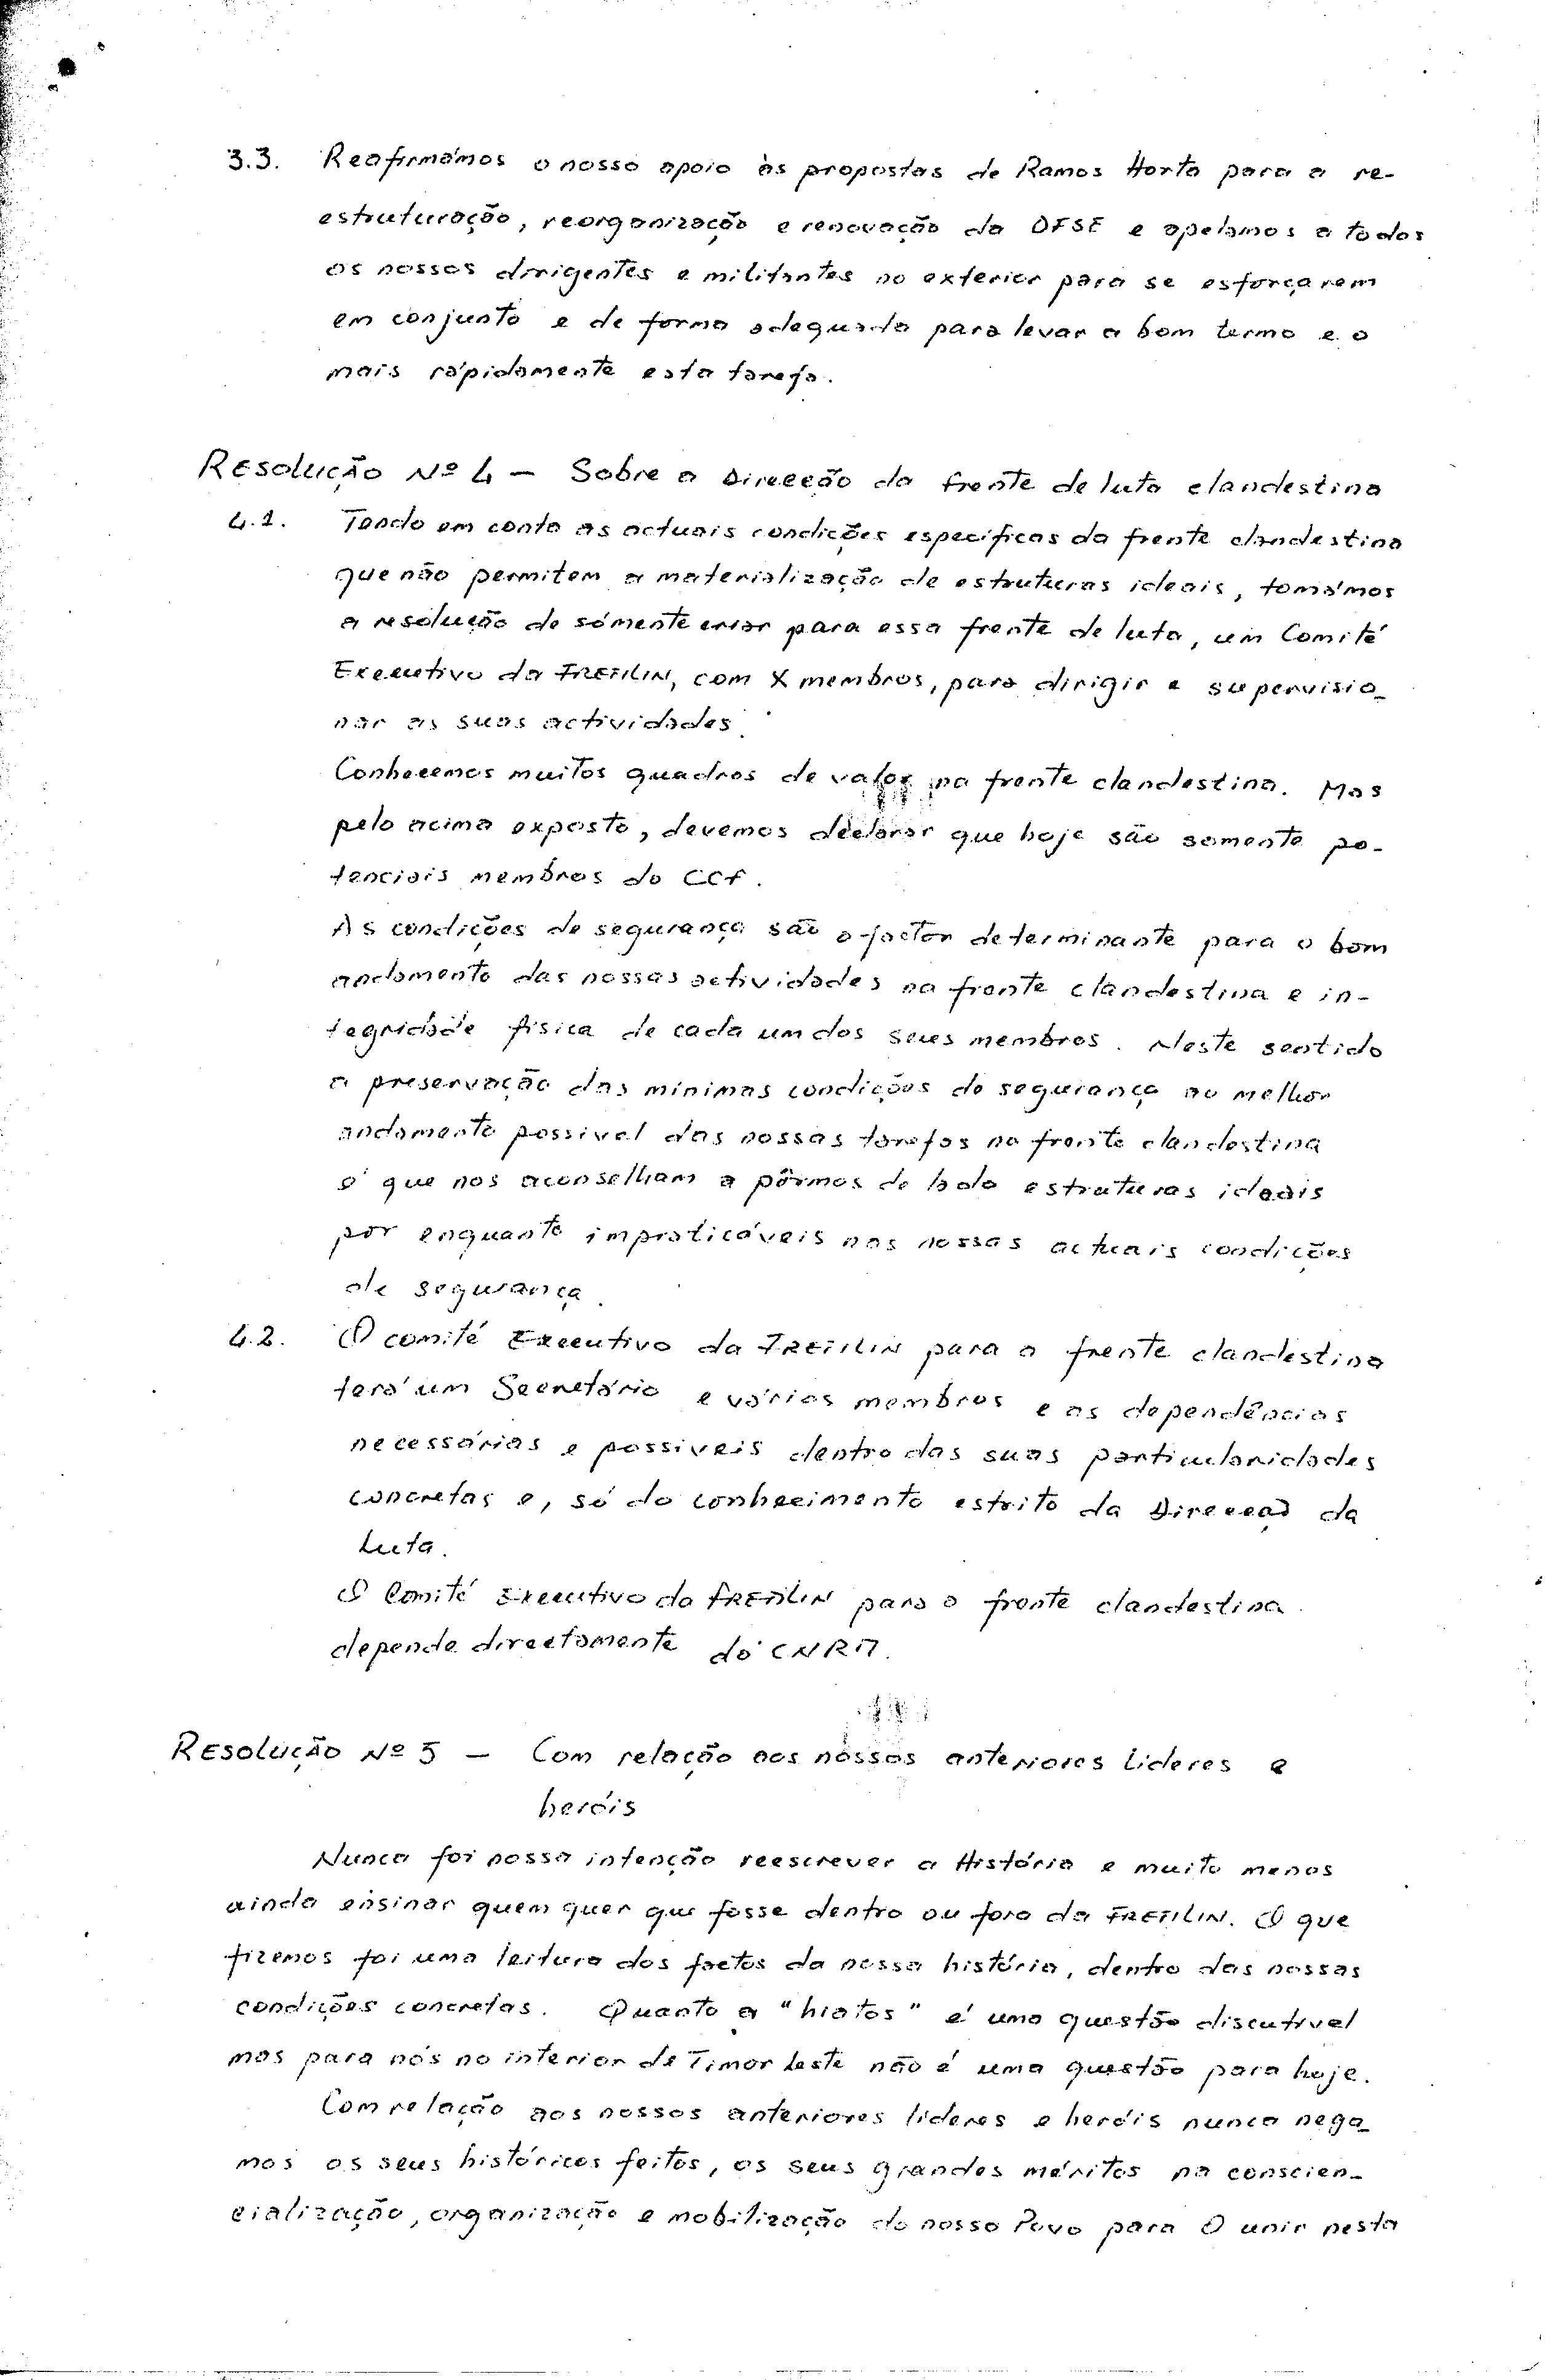 3.3. Reafirmámos o nosso apoio às propostas de Ramos Horta para a re-
estruturação, reorganização e renovação da DFSE e apelamos a todos
os nossos dirigentes e militantes no exterior para se esforçarem
em conjunto e de forma adequada para levar a bom termo e o
mais rápidamente esta tarefa.
Resolução Nº 4 — Sobre a Direcção da frente de luta clandestina
4.1. Tendo em conta as actuais condições específicas da frente clandestina
que não permitem a materialização de estruturas ideais, tomámos
a resolução de sómente criar para essa frente de luta, um Comité
Executivo da FRETILIN, com X membros, para dirigir e supervisio-
nar as suas actividades.
Conhecemos muitos quadros de valor na frente clandestina. Mas
pelo acima exposto, devemos declarar que hoje são somente po-
tenciais membros do CCF.
As condições de segurança são o factor determinante para o bom
andamento das nossas actividades na frente clandestina e in-
tegridade física de cada um dos seus membros. Neste sentido
a preservação das mínimas condições de segurança ao melhor
andamento possível das nossas tarefas na frente clandestina
é que nos aconselham a pôrmos de lado estruturas ideais
por enquanto impraticáveis nas nossas actuais condições
de segurança.
4.2. O comité Executivo da FRETILIN para a frente clandestina
terá um Secretário e vários membros e as dependências
necessárias e possíveis dentro das suas particularidades
concretas e, só do conhecimento estrito da Direcção da
Luta.
O Comité Executivo da FRETILIN para a frente clandestina
depende directamente do CNRM.
Resolução Nº 5 — Com relação aos nossos anteriores Líderes e
heróis
Nunca foi nossa intenção reescrever a História e muito menos
ainda ensinar quem quer que fosse dentro ou fora da FRETILIN. O que
fizemos foi uma leitura dos factos da nossa história, dentro das nossas
condições concretas. Quanto a "hiatos" é uma questão discutível
mas para nós no interior de Timor Leste não é uma questão para hoje.
Com relação aos nossos anteriores líderes e heróis nunca nega-
mos os seus históricos feitos, os seus grandes méritos na conscien-
cialização, organização e mobilização do nosso Povo para O unir nesta